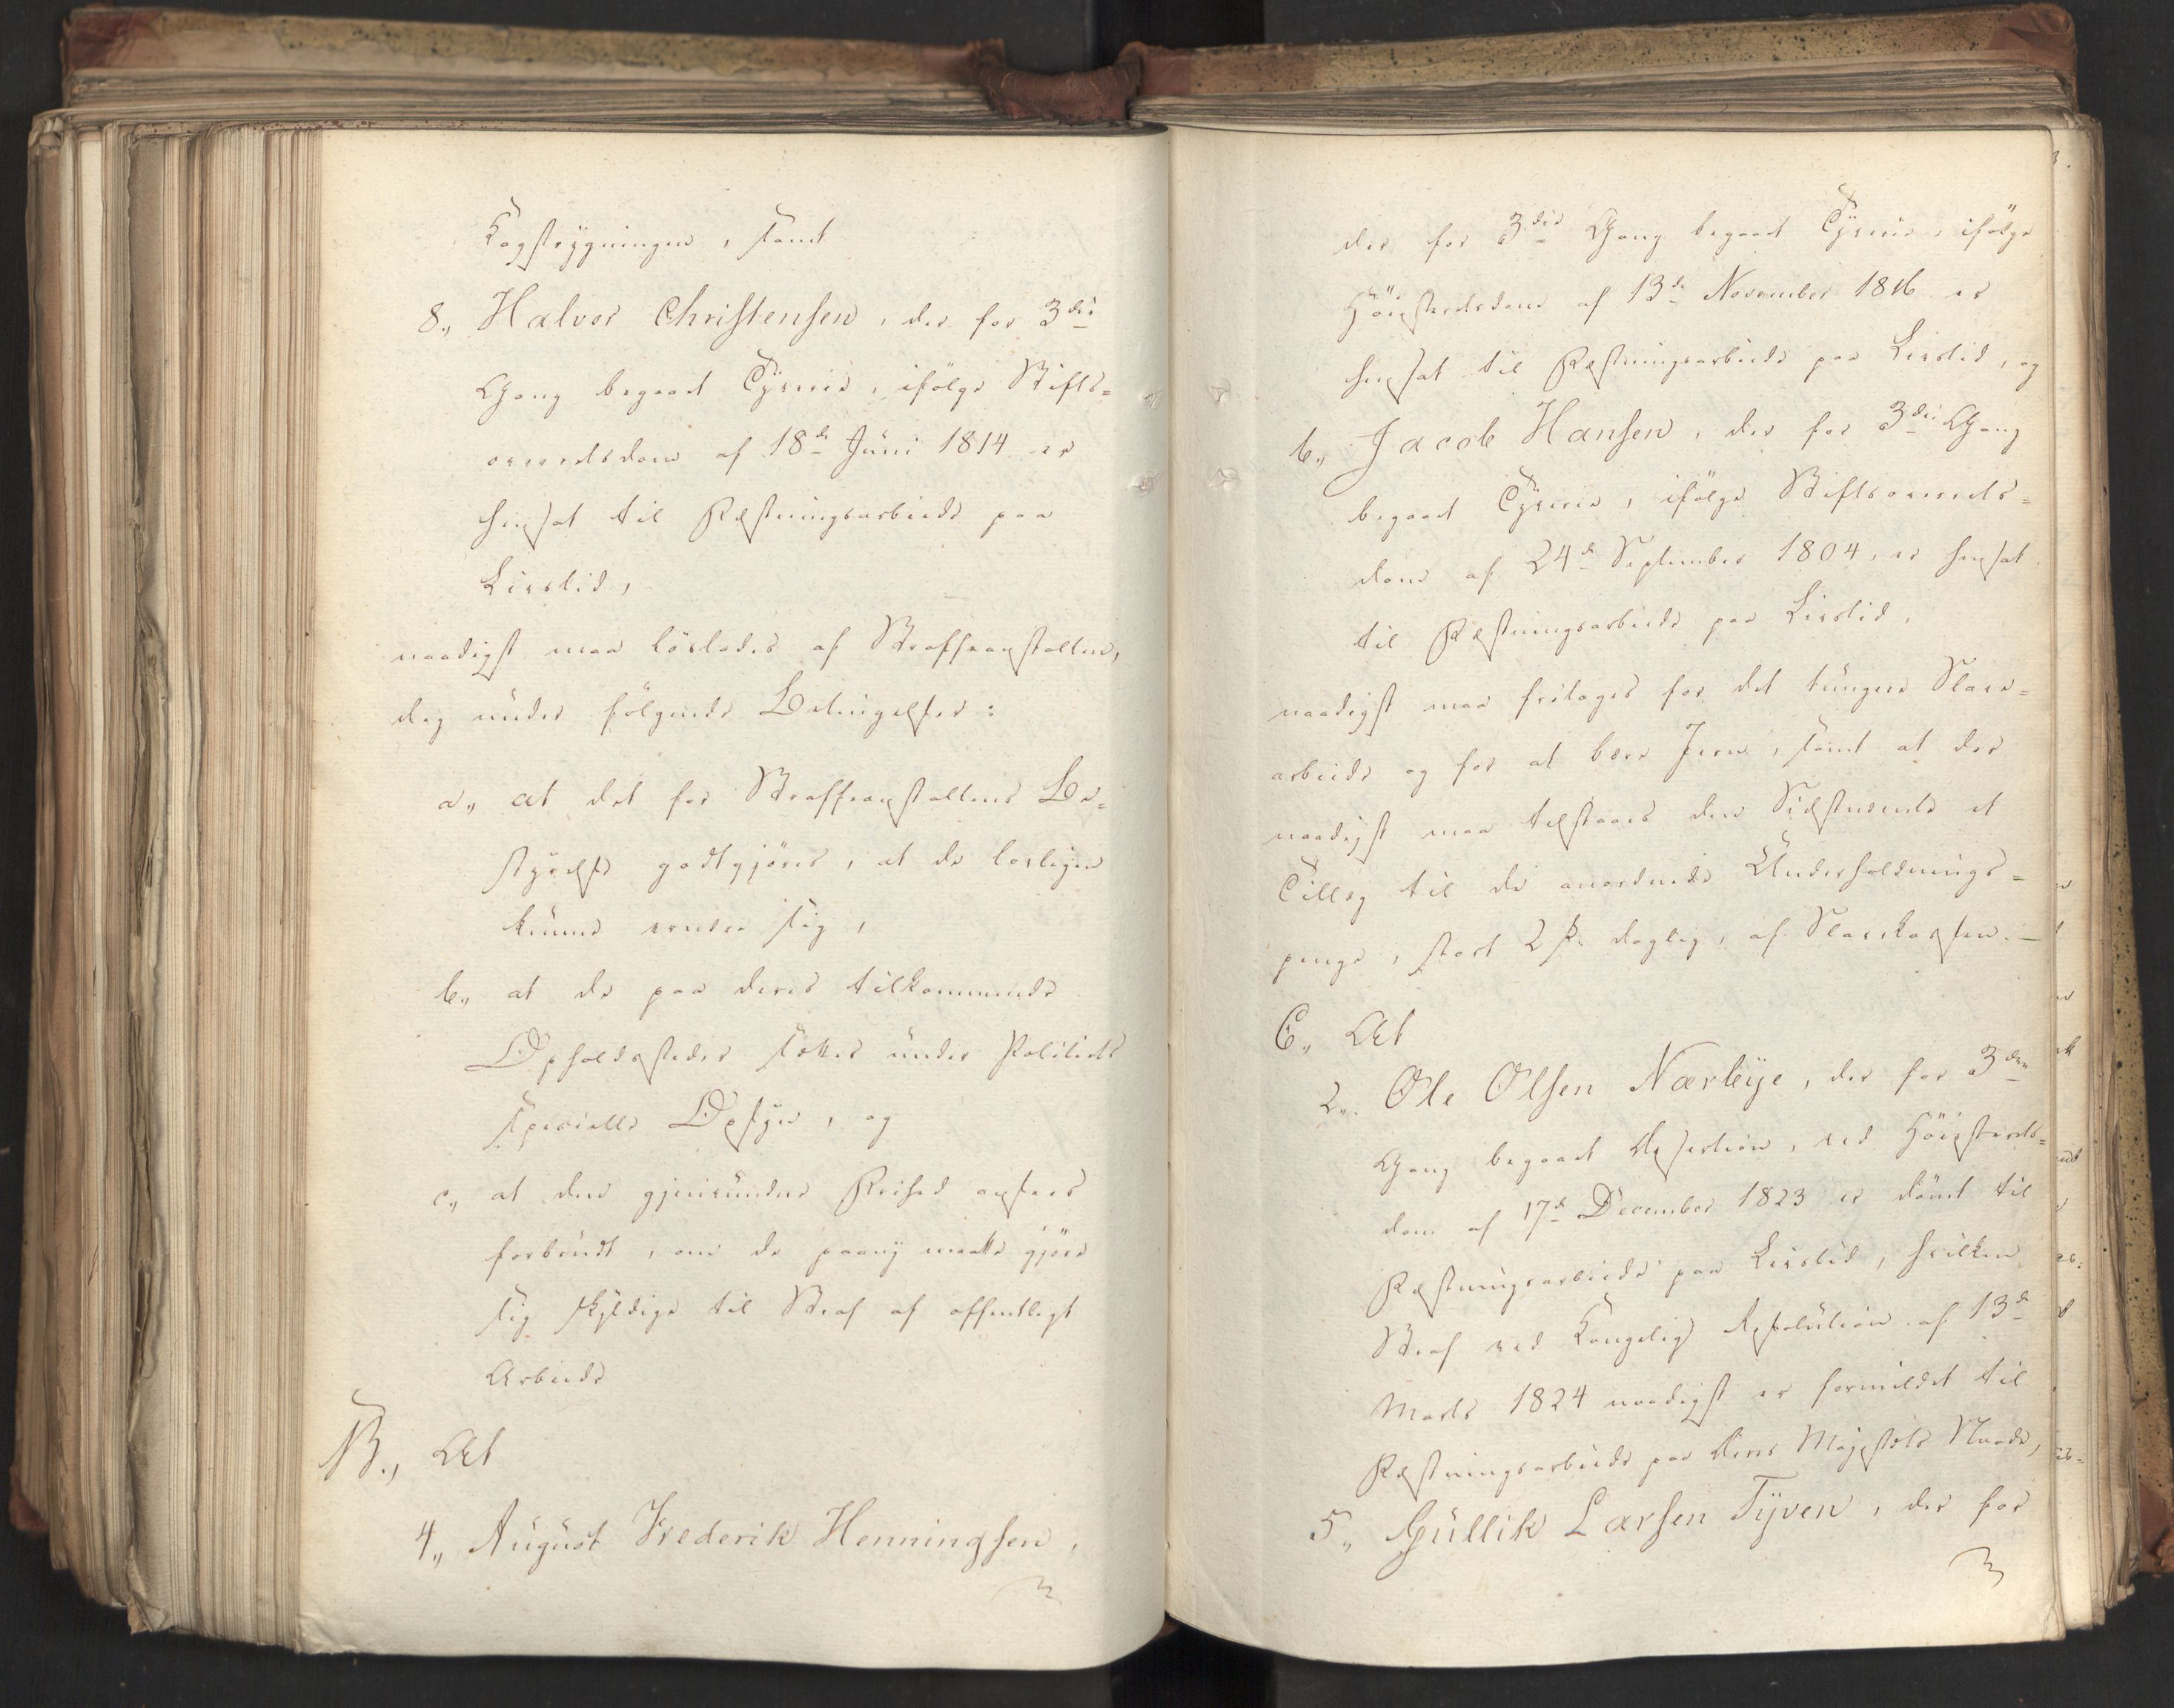 Kagstrygningen, samt
8., Halvor Christensen, der for 3die
Gang begaaet Tyverie, ifölge Stifts-
overretsdom af 18de Juni 1814 er
hensat til Fæstningsarbeide paa
Livstid,
naadigst maa löslades af Straffeanstalten,
dog under fölgende Betingelser:
a., at det for Straffeanstaltens Be-
styrelse godtgjöres, at de lovligen
kunne ernære sig,
b., at de paa deres tilkommende
Opholdssteder sættes under Politiets
specielle Opsyn, og
c., at den gjenvundne Frihed ansees
forbrudt, om de paany maatte gjöre
sig skyldige til Straf af offentligt
Arbeide
B., At
4., August Frederik Henningsen,
der for 3die Gang begaaet Tyverie, ifölge
Höiesteretsdom af 13de November 1816 er
hensat til Fæstningsarbeide paa Livstid, og
6., Jacob Hansen, der for 3die Gang
begaaet Tyverie, ifölge Stiftsoverrets-
dom af 24de September 1804, er hensat
til Fæstningsarbeide paa Livstid,
naadigst maa fritages for det tungere Slave-
arbeide og for at bære Jern, samt at der
naadigst maa tilstaaes den Sidstnævnte et
Tillæg til de anordnede Underholdnings-
penge, stort 2 s. daglig, af Slavekassen.-
C., At
2., Ole Olsen Nærbye, der for 3die
Gang begaaet Desertion, ved Höiesterets-
dom af 17de December 1823 er dömt til
Fæstningsarbeide paa Livstid, hvilken
Straf ved Kongelig Resolution af 13de
Marts 1824 naadigst er formildet til
Fæstningsarbeide paa Deres Majestæts Naade,
5., Gullik Larsen Tyven, der for